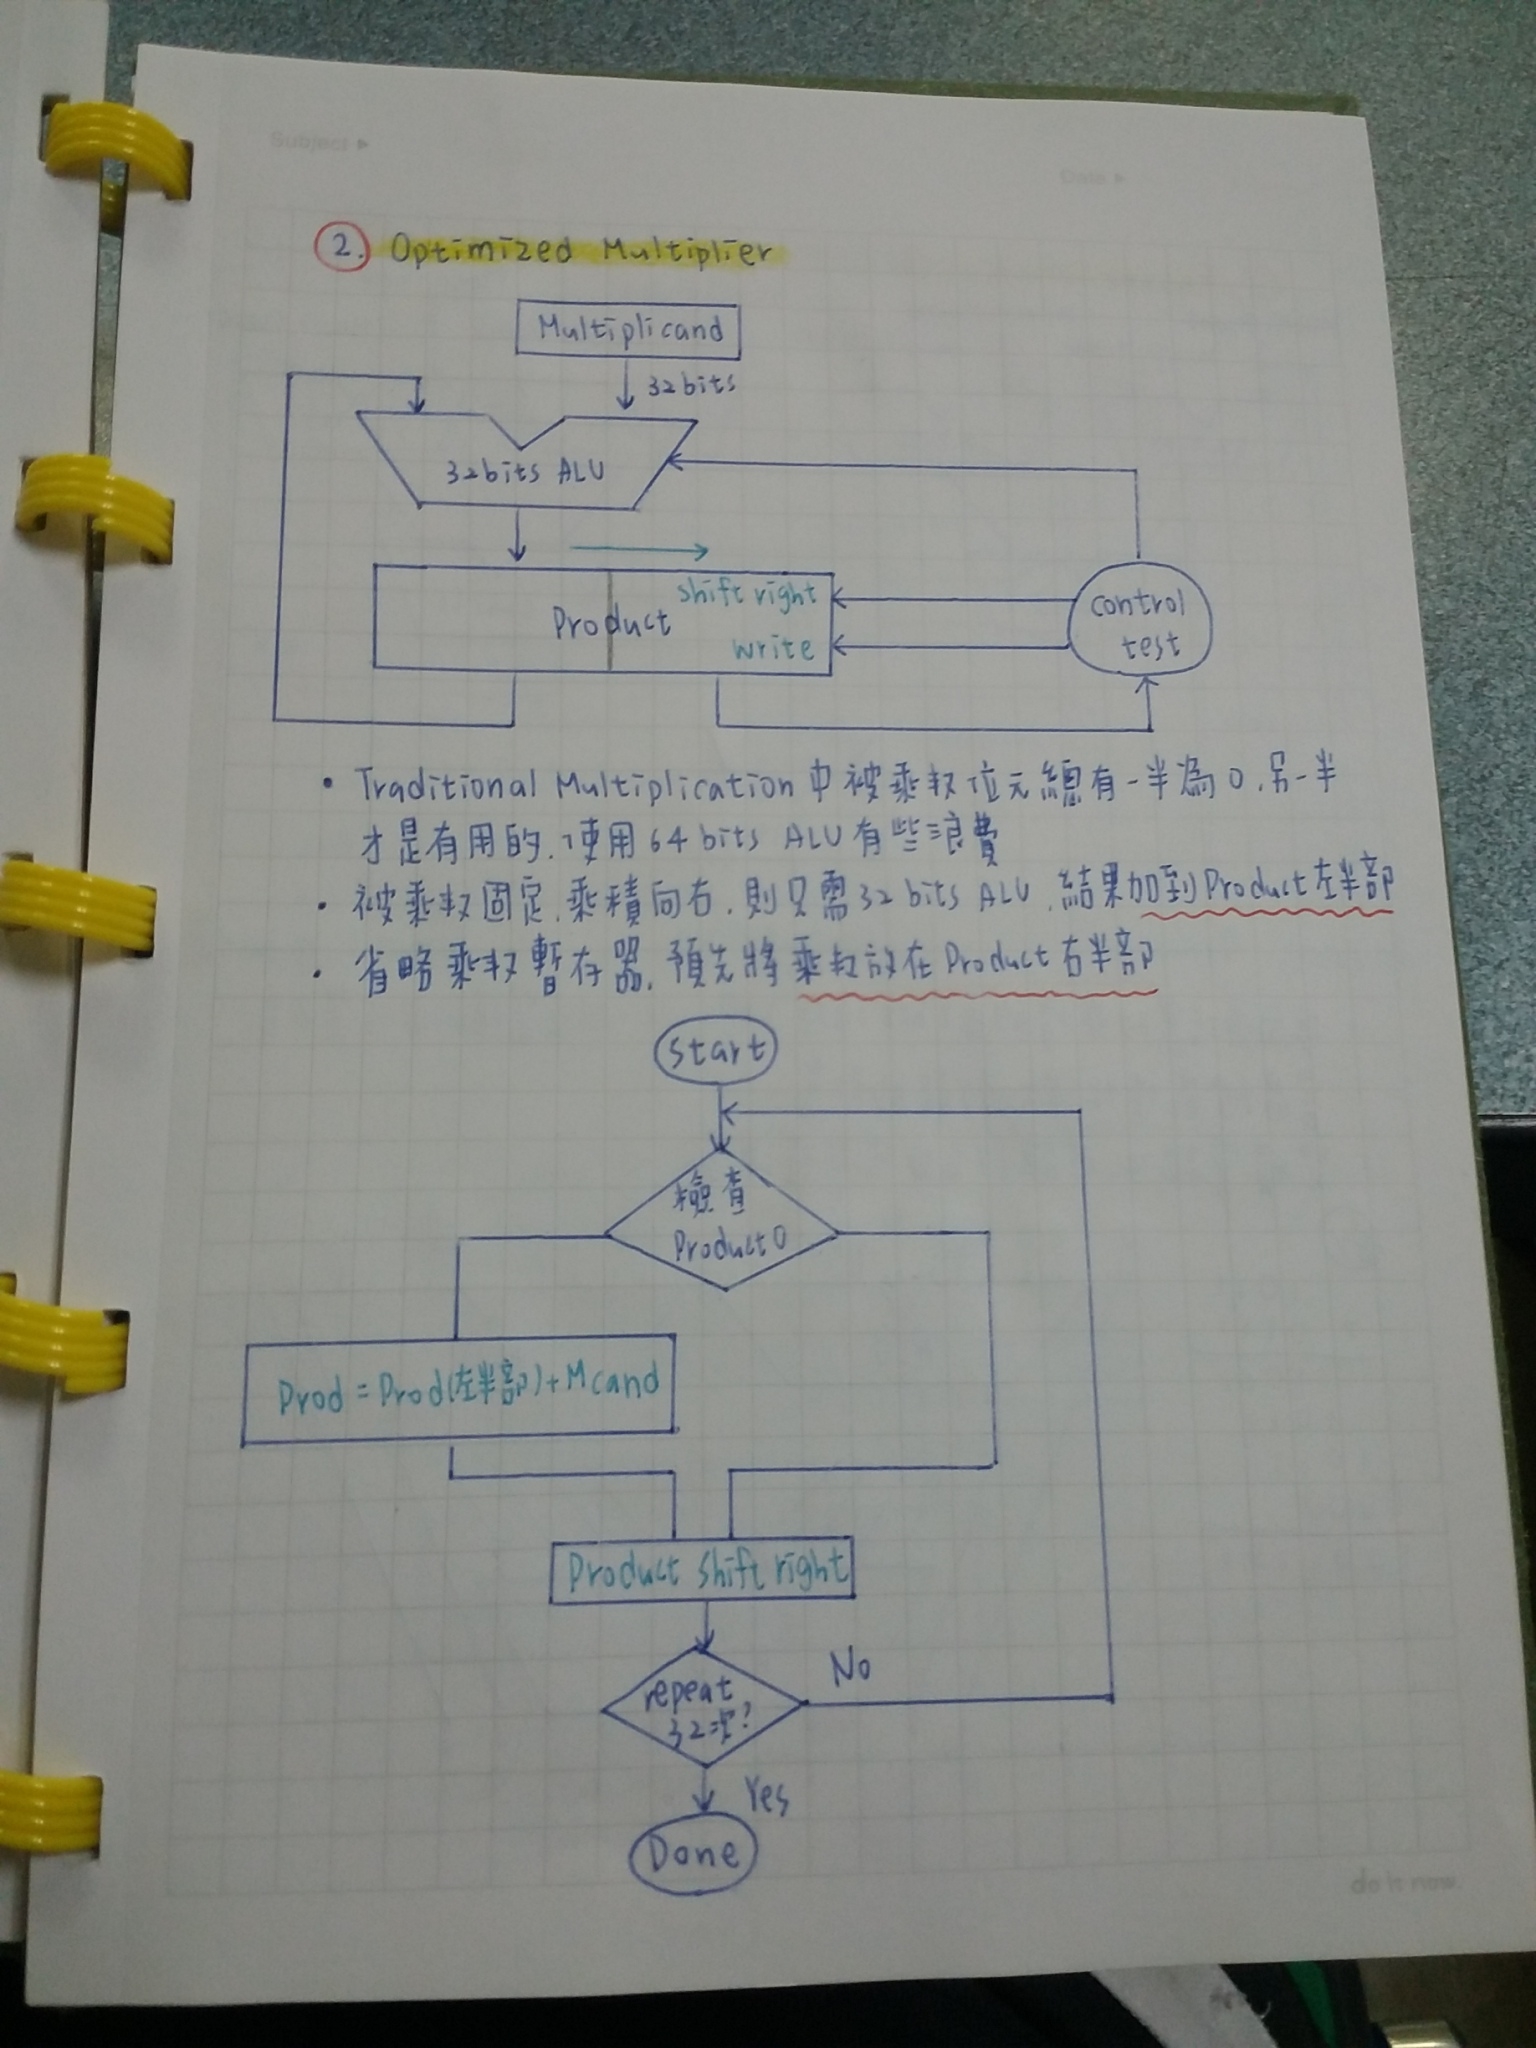 Subject ▸
Date ▸
2. Optimized Multiplier
Multiplicand
32bits
32bits ALU
shift right
Product
write
control
test
• Traditional Multiplication中被乘数位元總有一半為0,另一半
才是有用的,使用64bits ALU有些浪費
• 被乘数固定,乘積向右,則只需32bits ALU,結果加到Product左半部
• 省略乘数暫存器,預先將乘数放在Product右半部
Start
檢查
Product0
Prod=Prod(左半部)+Mcand
Product shift right
repeat
32次?
No
Yes
Done
do it now.